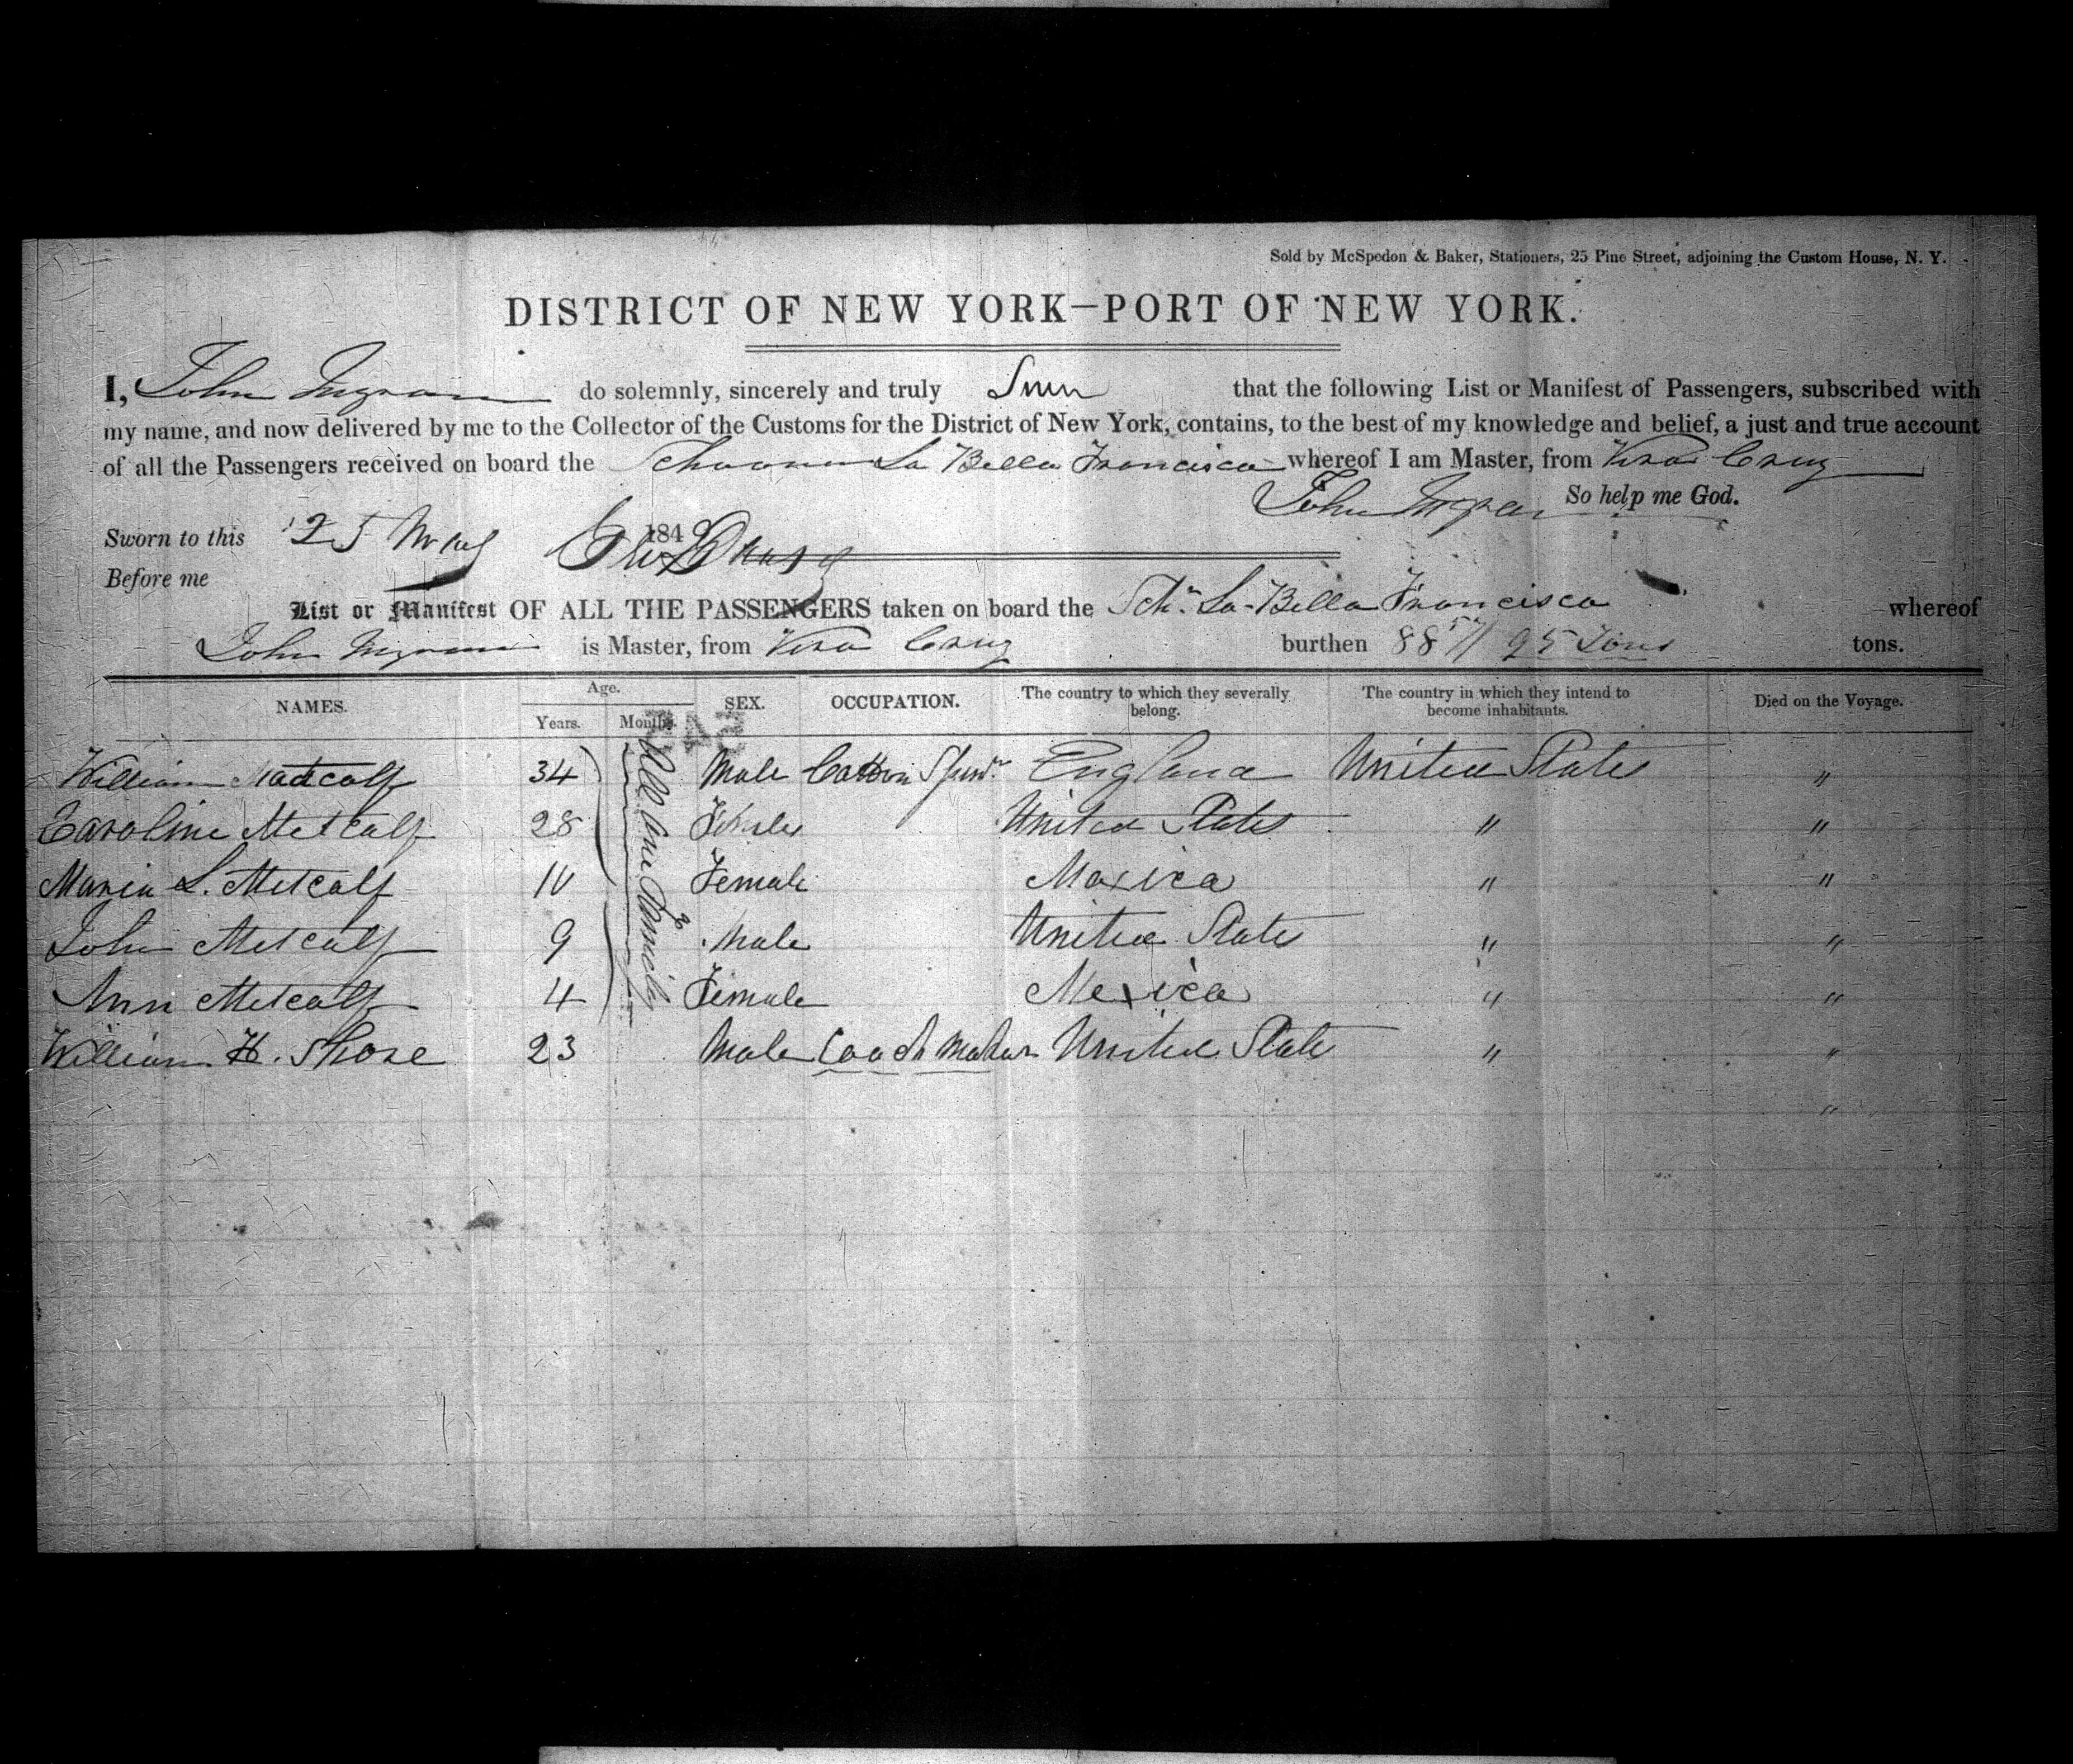 Sold by McSpedon & Baker, Stationers, 25 Pine Street, adjoining the Custom House, N. Y.
DISTRICT OF NEW YORK—PORT OF NEW YORK.
I, John Ingram do solemnly, sincerely and truly that the following List or Manifest of Passengers, subscribed with
my name, and now delivered by me to the Collector of the Customs for the District of New York, contains, to the best of my knowledge and belief, a just and true account
of all the Passengers received on board the Schooner La Bella Francisca whereof I am Master, from Vera Cruz
John Ingram So help me God.
Sworn to this 25 May 184
Before me
List or Manifest OF ALL THE PASSENGERS taken on board the Schr. La Bella Francisca whereof
John Ingram is Master, from Vera Cruz burthen 88 57/95 Tons tons.
NAMES. Age. Years. Months. SEX. OCCUPATION. The country to which they severally belong. The country in which they intend to become inhabitants. Died on the Voyage.
All one Family
William Matcalf 34 Male Cotton England United States "
Caroline Metcalf 28 Female United States " "
Maria L. Metcalf 10 Female Maxica " "
John Metcalf 9 Male United States " "
Ann Metcalf 4 Female Mexica " "
William H. Shose 23 Male Coach Maker United State " "
"